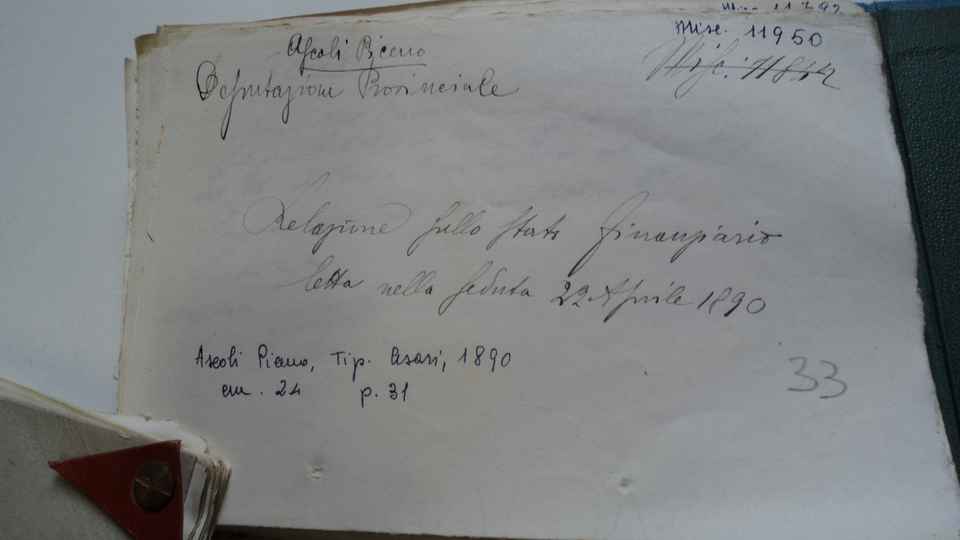 Misc. 11950
Ascoli Piceno
Misc. 11842
Deputazione Provinciale
Relazione sullo stato finanziario
letta nella seduta 22 Aprile 1890
Ascoli Piceno, Tip. Cesari, 1890
cm. 24 p. 31
33